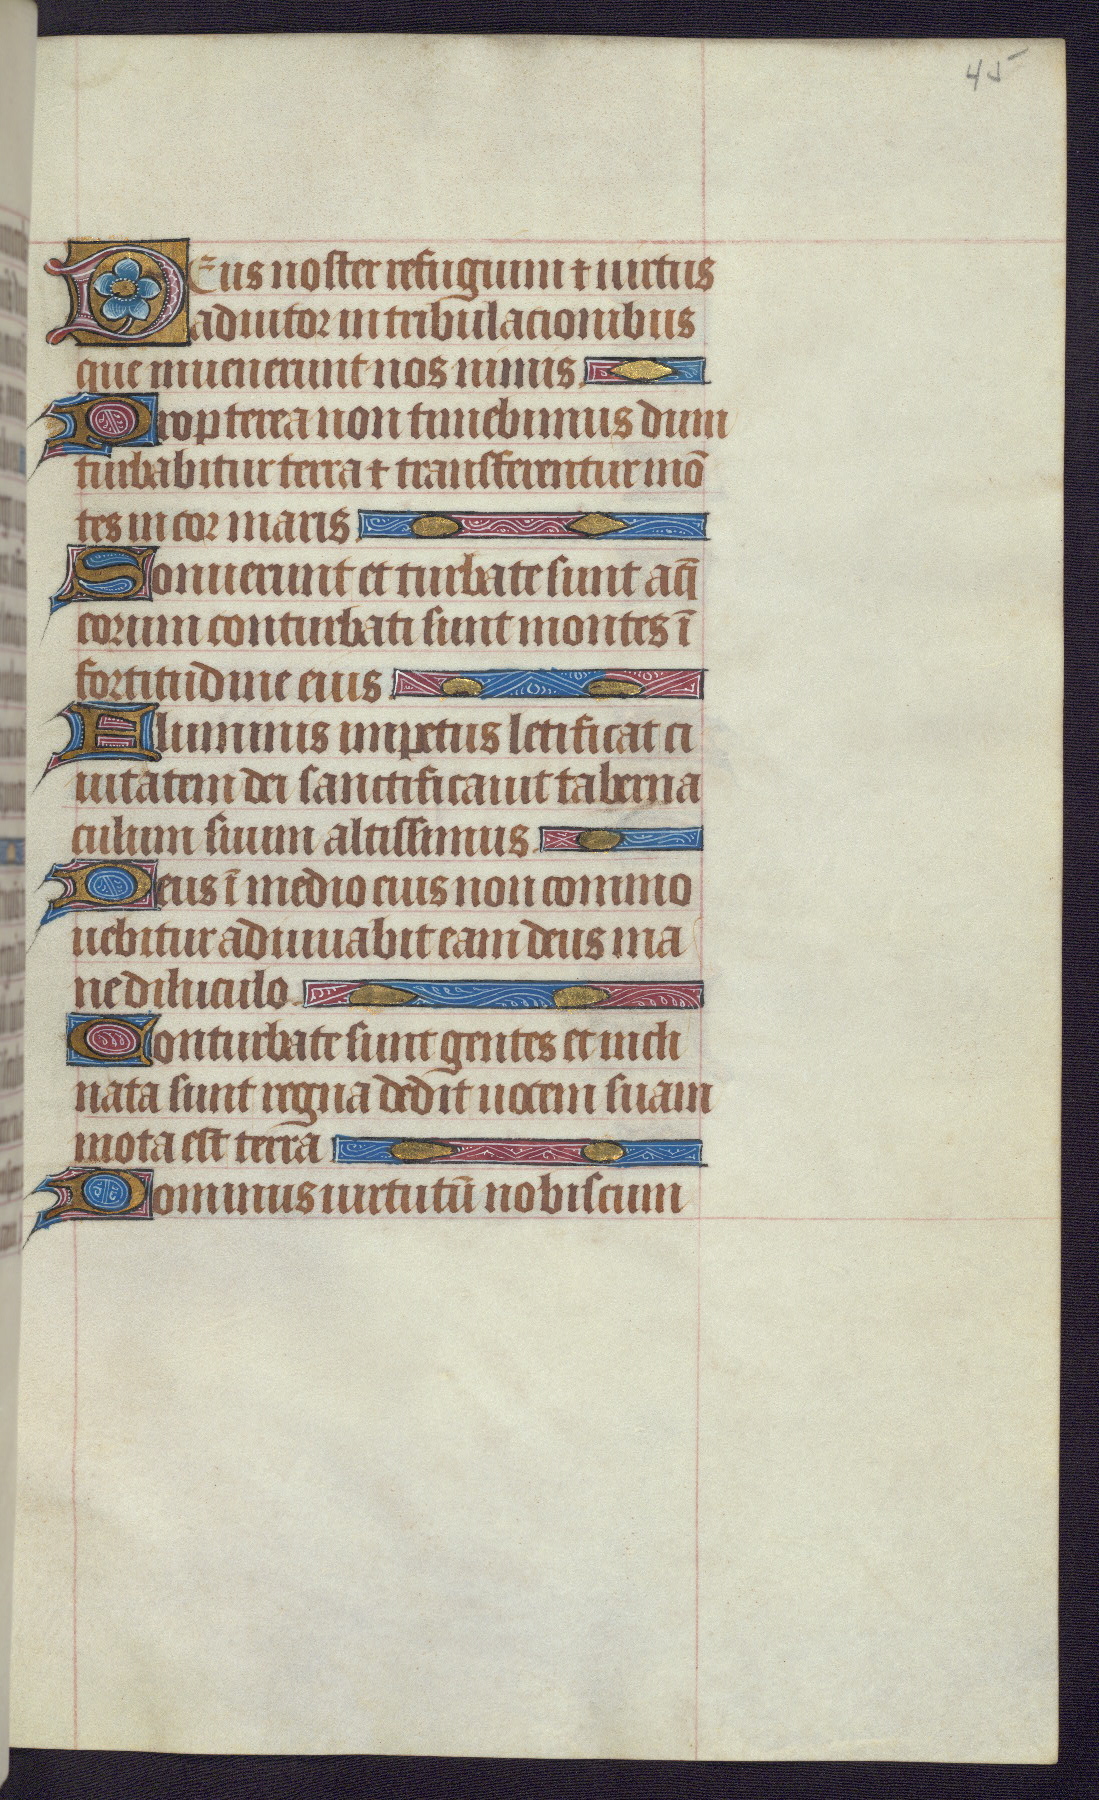 45
DEus noster refugium ⁊ uirtus
adiutor in tribulacionibus
que inuenerunt nos nimis.
Propterea non timebimus dum
turbabitur terra ⁊ transferentur mō
tes in cor maris
Sonuerunt et turbate sunt aq̄
eorum conturbati sunt montes ī
fortitudine eius
Fluminis impetus letificat ci
uitatem dei sanctificauit taberna
culum suum altissimus.
Deus ī medio eius non commo
uebitur adiuuabit eam deus ma
ne diluculo.
Conturbate sunt gentes et incli
nata sunt regna dedit uocem suam
mota est terra
Dominus uirtutū nobiscum